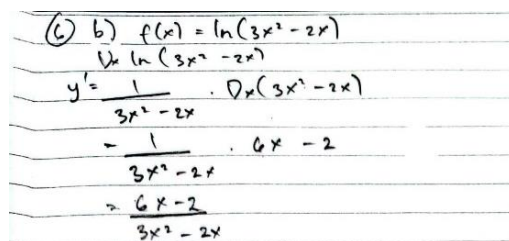 ⑥ b) f(x) = ln(3x² - 2x)
Dx ln (3x² - 2x)
y' = 1 / 3x² - 2x . Dx(3x² - 2x)
= 1 / 3x² - 2x . 6x - 2
= 6x - 2 / 3x² - 2x